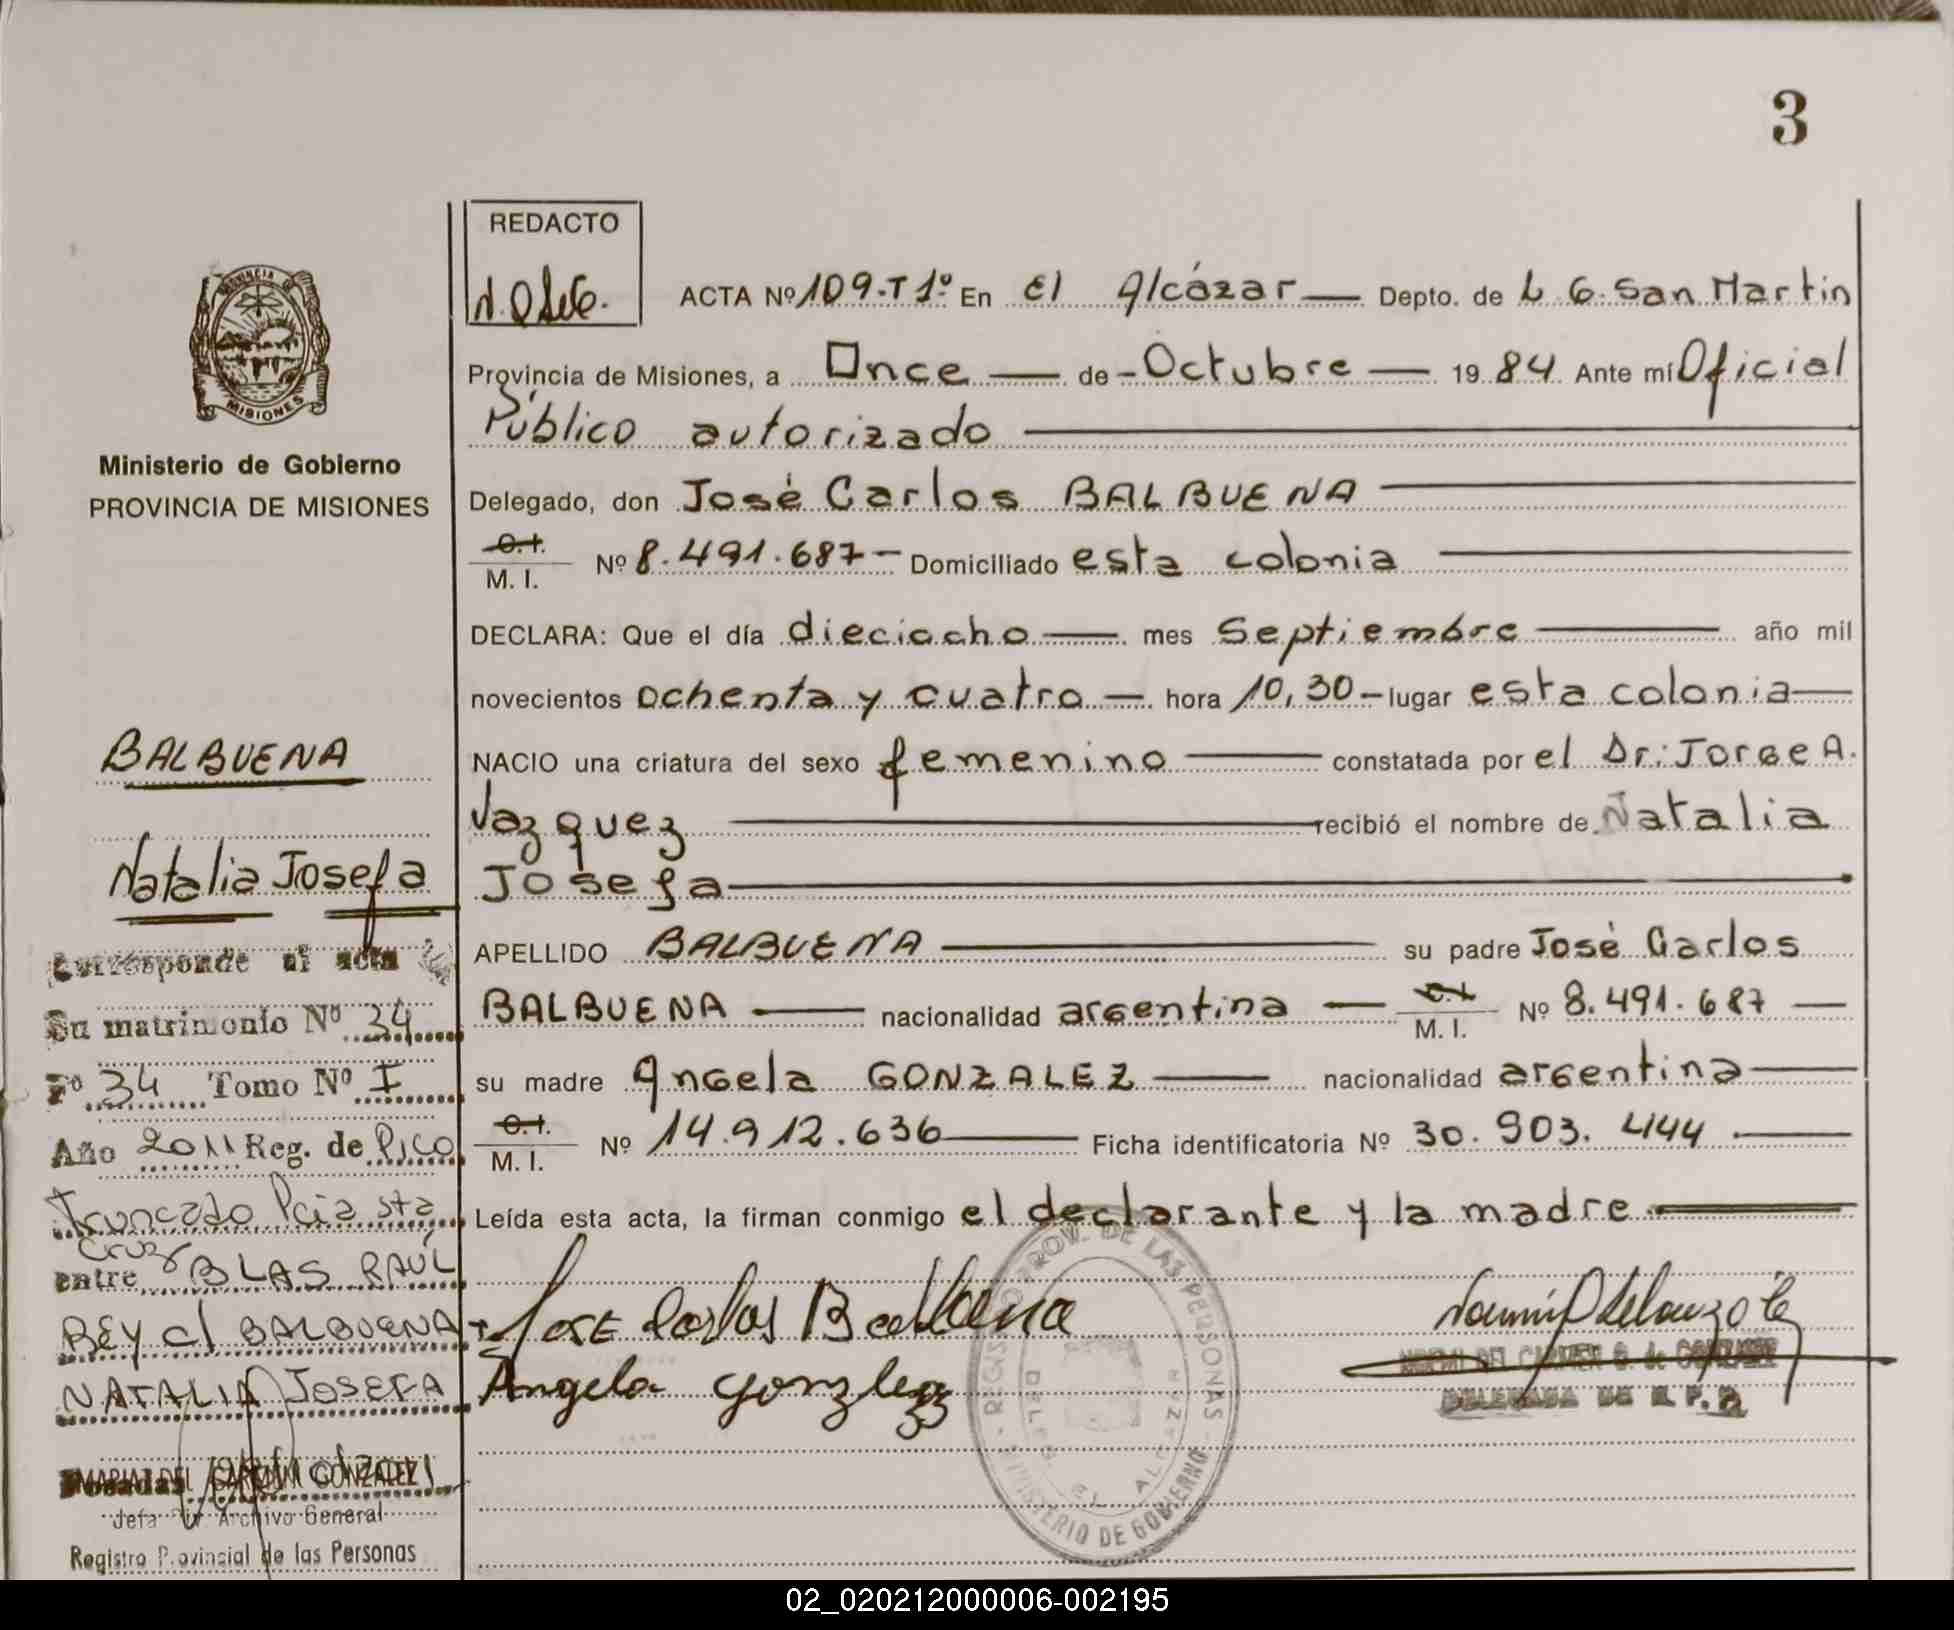 3
REDACTO
ACTA Nº 109-T1º En El Alcázar Depto. de L. G. San Martin
Provincia de Misiones, a Once de Octubre 1984 Ante mí Oficial
Público autorizado
Delegado, don José Carlos BALBUENA
C.I.
M. I. Nº 8.491.687 Domiciliado esta colonia
DECLARA: Que el día dieciocho mes Septiembre año mil
novecientos ochenta y cuatro hora 10,30 lugar esta colonia
NACIO una criatura del sexo femenino constatada por el Dr: Jorge A.
Vazquez recibió el nombre de Natalia
Josefa
APELLIDO BALBUENA su padre José Carlos
BALBUENA nacionalidad argentina C.I. M. I. Nº 8.491.687
su madre Angela GONZALEZ nacionalidad argentina
C.I.
M. I. Nº 14.912.636 Ficha identificatoria Nº 30.903.444
Leída esta acta, la firman conmigo el declarante y la madre
José Carlos Balbuena
Angela Gonzalez
NOEMI DEL CARMEN O. de GONZALEZ
DELEGADA DE R. P. P.
REGISTRO PROV. DE LAS PERSONAS
MINISTERIO DE GOBIERNO
DELEG. EL ALCAZAR
PROVINCIA
MISIONES
Ministerio de Gobierno
PROVINCIA DE MISIONES
BALBUENA
Natalia Josefa
Corresponde al acta
Su matrimonio Nº 34
Fº 34 Tomo Nº I
Año 2011 Reg. de Pico
Truncado Pcia Sta
Cruz
entre BLAS RAÚL
REY c/ BALBUENA
NATALIA JOSEFA
Posadas
MARIA DEL CARMEN GONZALEZ
Jefa Archivo General
Registro Provincial de las Personas
02_020212000006-002195